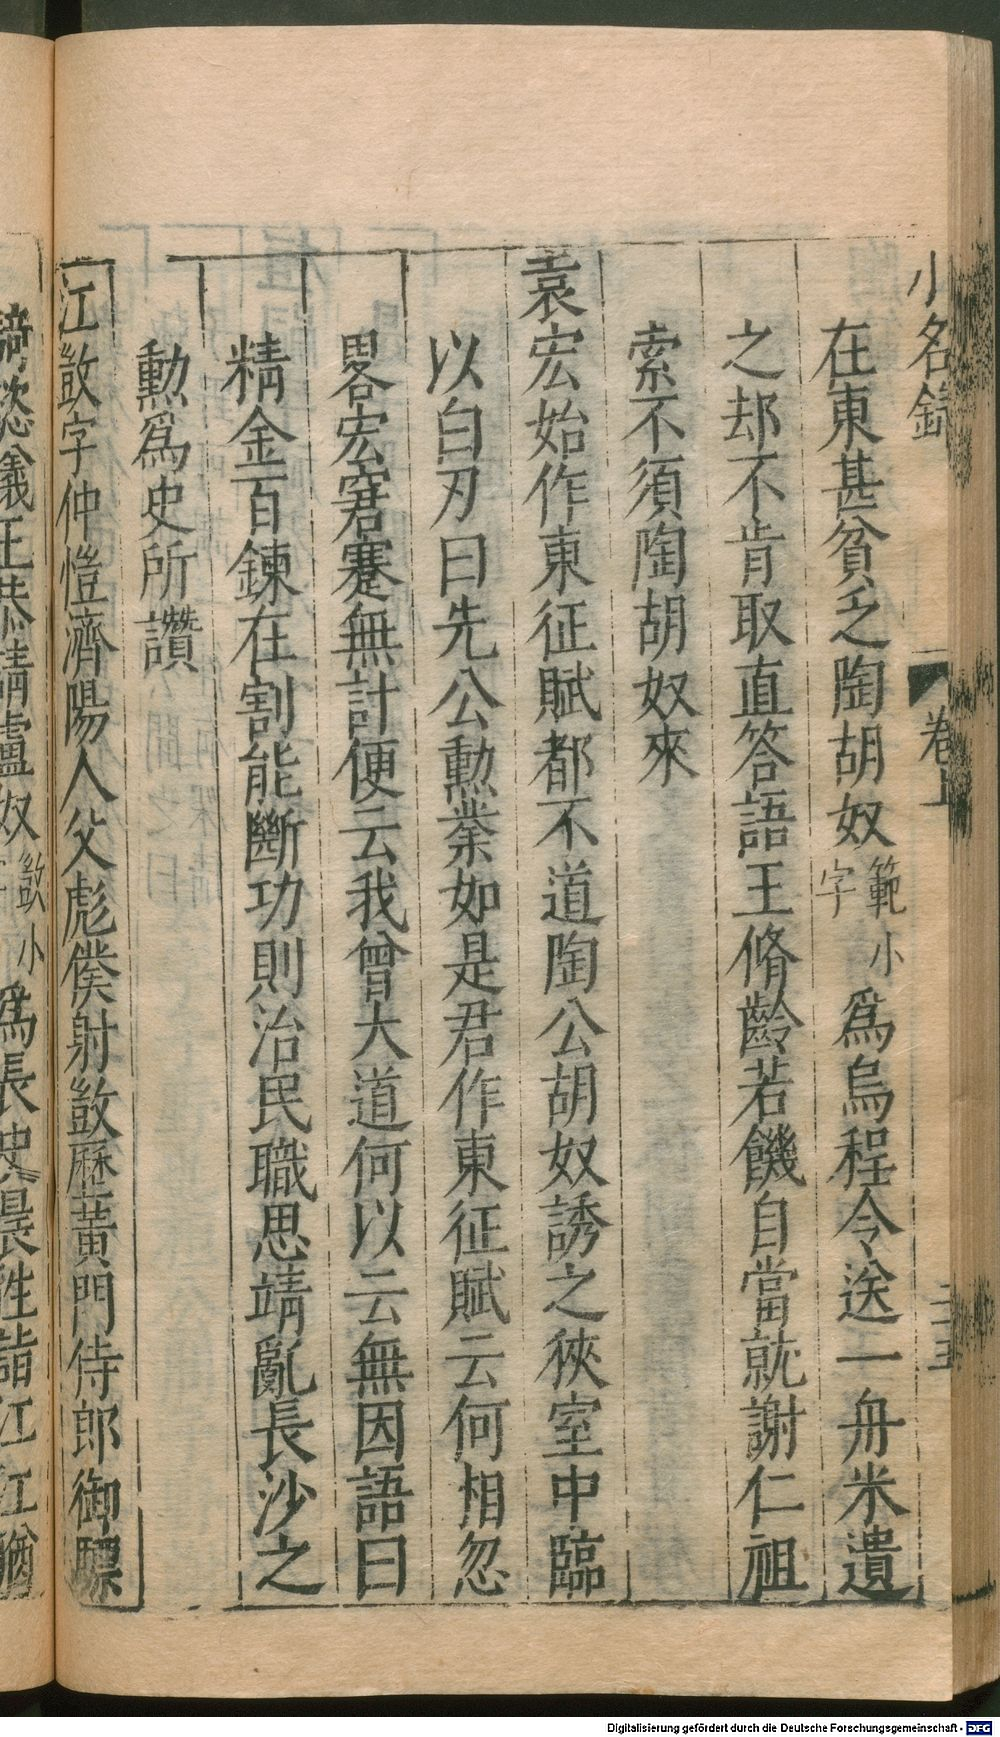 小名錄 卷上 二十五
在東甚貧乏陶胡奴範小字爲烏程令送一舟米遺
之却不肯取直答語王脩齡若饑自當就謝仁祖
索不須陶胡奴來
袁宏始作東征賦都不道陶公胡奴誘之狹室中臨
以白刃曰先公勲業如是君作東征賦云何相忽
畧宏窘蹇無計便云我曾大道何以云無因語曰
精金百鍊在割能斷功則治民職思靖亂長沙之
勲爲史所讚
江敳字仲愷濟陽人父彪僕射敳歷黃門侍郎御驃
騎咨議王恭請盧奴敳小爲長史晨往詣江江猶
Digitalisierung gefördert durch die Deutsche Forschungsgemeinschaft - DFG